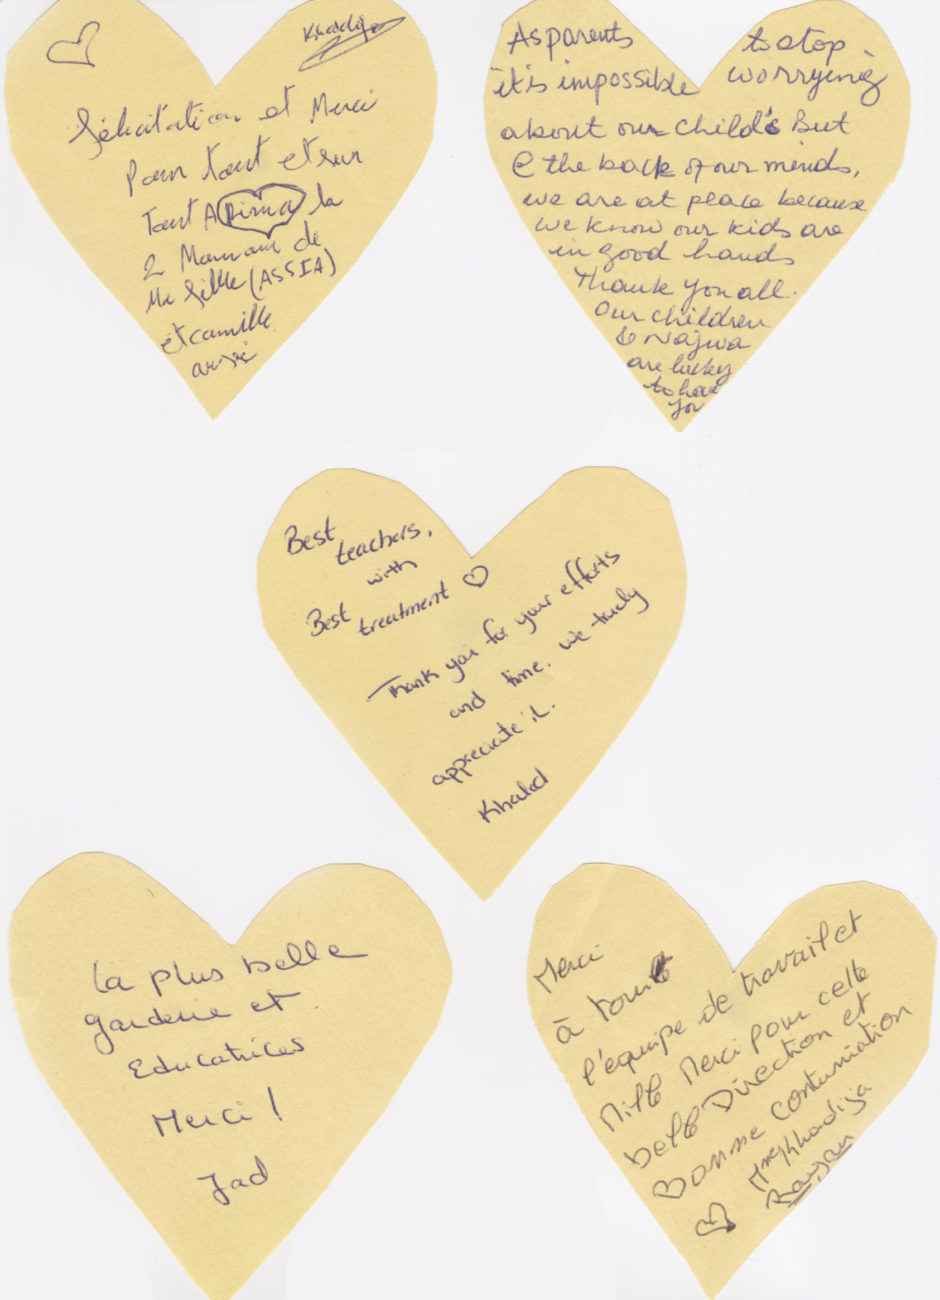 Khadija
félicitation et Merci
Pour tout et sur
tout A Rima la
2 Maman de
Ma fille (ASSIA)
et camille
aussi
As parents to stop
it is impossible worrying
about our child's But
@ the back of our minds,
we are at peace because
we know our kids are
in good hands
Thank you all.
Our children
& Najwa
are lucky
to have
you
Best
teachers,
with
Best
treatment ♡
Thank you for your efforts
and time. we truly
appreciate it.
Khaled
La plus belle
garderie et
Educatrices
Merci !
Jad
Merci
à toute
l'équipe de travail et
Mille Merci pour cette
belle Direction et
Bonne contunuation
Mme Khadija
Rayan